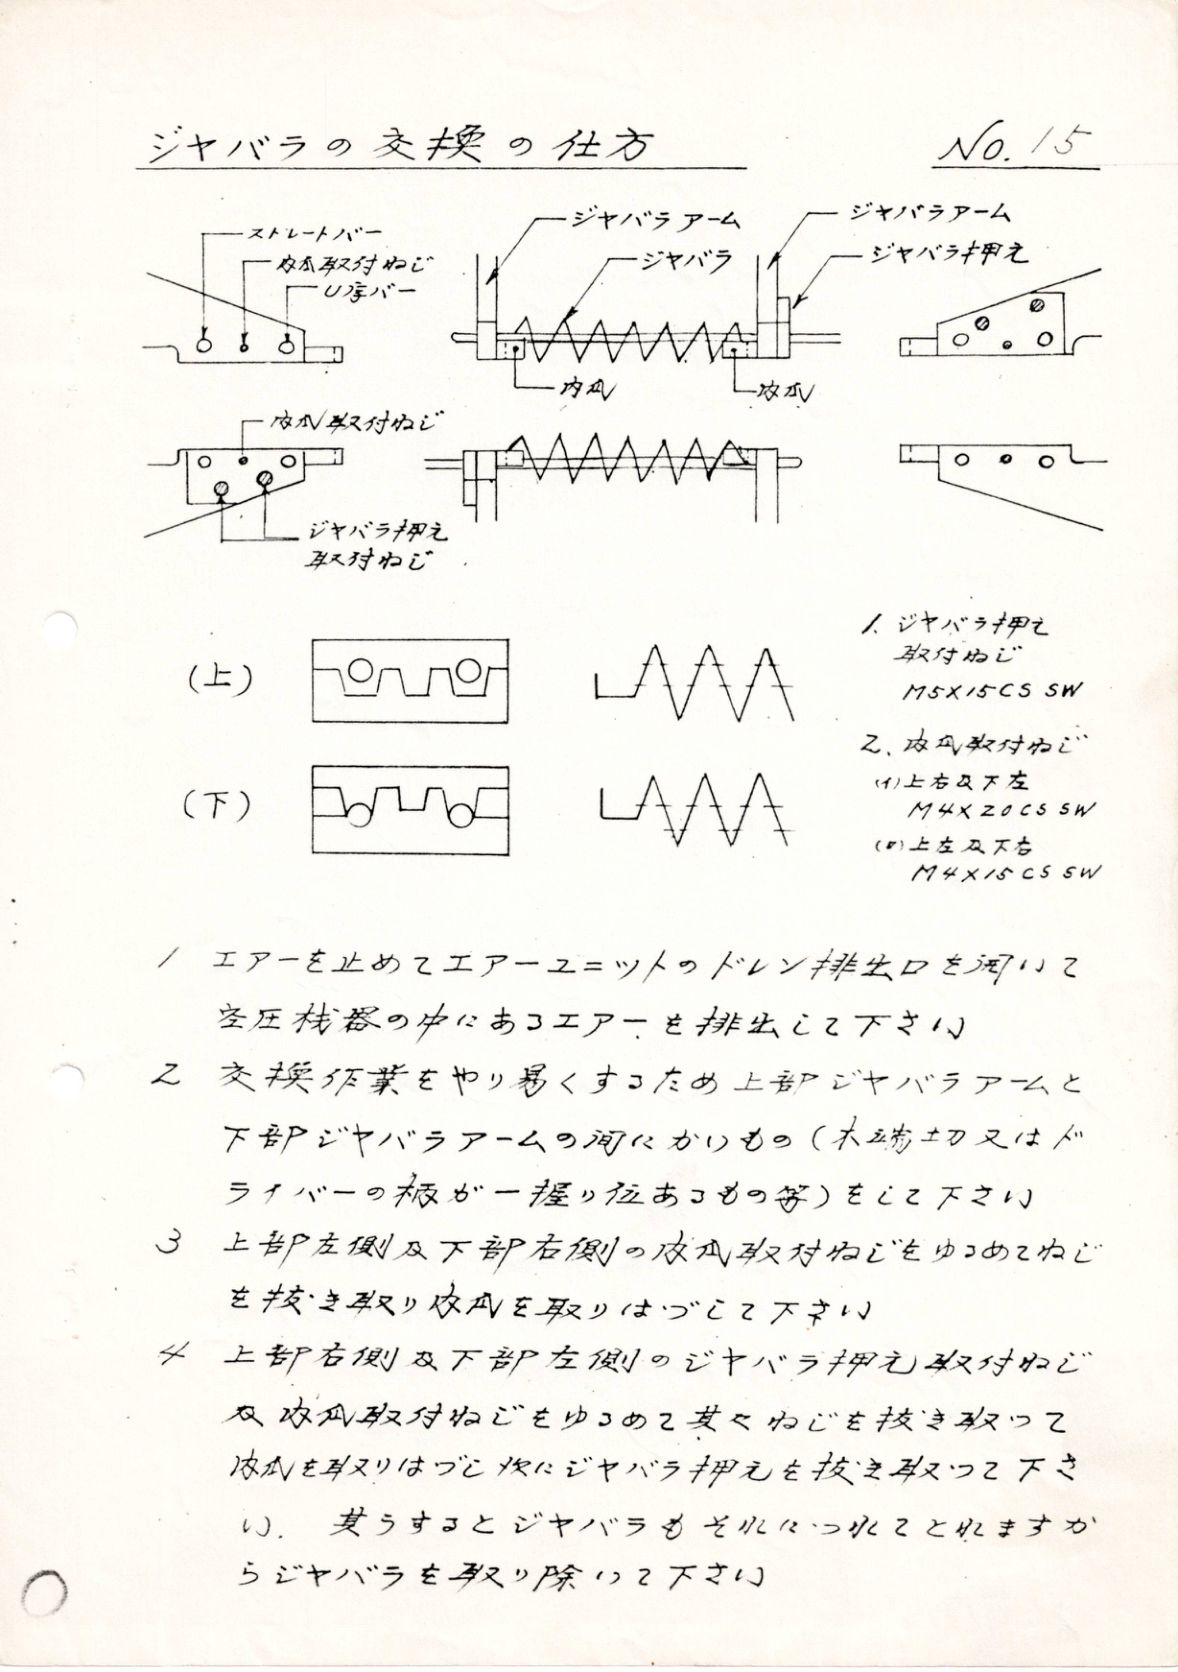 ジヤバラの交換の仕方
No. 15
ストレートバー
内爪取付ねじ
U字バー
ジヤバラアーム
ジヤバラ
ジヤバラアーム
ジヤバラ押え
内爪
内爪
内爪取付ねじ
ジヤバラ押え
取付ねじ
(上)
(下)
1. ジヤバラ押え
取付ねじ
M5X15CS SW
2. 内爪取付ねじ
(イ)上右及下左
M4X20CS SW
(ロ)上左及下右
M4X15CS SW
1 エアーを止めてエアーユニットのドレン排出口を開いて
空圧機器の中にあるエアーを排出して下さい
2 交換作業をやり易くするため上部ジヤバラアームと
下部ジヤバラアームの間にかいもの(木端切又はド
ライバーの柄が一握り位あるもの等)をして下さい
3 上部左側及下部右側の内爪取付ねじをゆるめてねじ
を抜き取り内爪を取りはづして下さい
4 上部右側及下部左側のジヤバラ押え取付ねじ
及内爪取付ねじをゆるめて其々ねじを抜き取つて
内爪を取りはづし次にジヤバラ押えを抜き取つて下さ
い. 其うするとジヤバラもそれにつれてとれますか
らジヤバラを取り除いて下さい